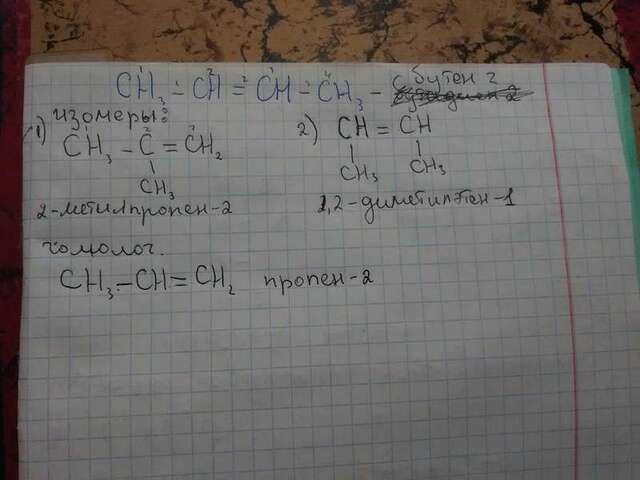 CH₃ - CH = CH - CH₃ - бутен 2
изомеры:
1) CH₃ - C = CH₂
CH₃
2-метилпропен-2
2) CH = CH
CH₃ CH₃
1,2-диметилэтен-1
гомолог.
CH₃-CH=CH₂ пропен-2